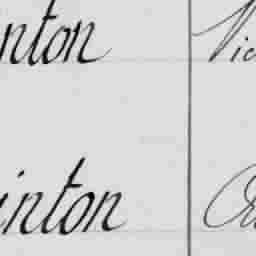 nton Vic
inton